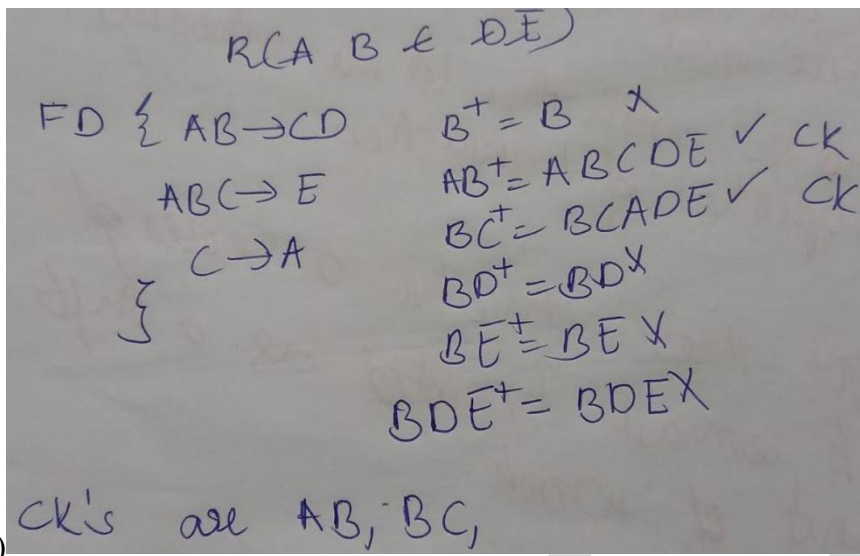 R(A B C DE)
FD { AB→CD B⁺ = B X
AB⁺ = ABCDE ✓ CK
ABC→E
BC⁺ = BCADE ✓ CK
C→A
BD⁺ = BD X
}
BE⁺ = BE X
BDE⁺ = BDE X
) CK's are AB, BC,